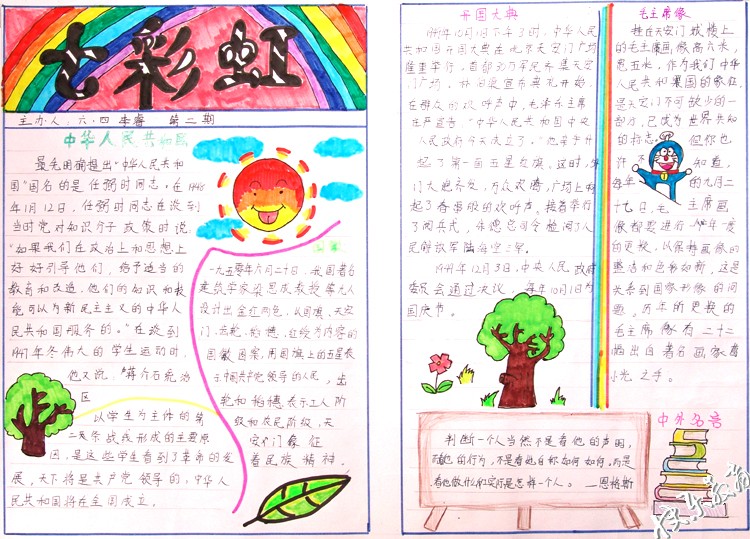 七彩虹
主办人:六.四 李睿 第二期
中华人民共和国
最先明确提出"中华人民共和
国"国名的是任弼时同志,在1948
年1月12日,任弼时同志在谈到
当时党对知识分子政策时说:
"如果我们在政治上和思想上
好好引导他们,给予适当的
教育和改造,他们的知识和技
能可以为新民主主义的中华人
民共和国服务的。"在谈到
1947年冬伟大的学生运动时,
他又说,"蒋介石统治
区
以学生为主体的第
二条战线形成的主要原
因,是这些学生看到了革命的发
展,天下将是共产党领导的,中华人
民共和国将在全国成立。
一九五零年六月二十日,我国著名
建筑学家梁思成教授等九人
设计出金红两色,以国旗、天安
门、齿轮、稻穗、红绶为内容的
国徽图案,用国旗上的五星表
示中国共产党领导的人民,齿
轮和稻穗表示工人阶
级和农民阶级,天
安门像征
着民族精神。
开国大典
1949年10月1日下午3时,中华人民
共和国开国大典在北京天安门广场
隆重举行,首都30万军民齐集天安
门广场。林伯渠宣布典礼开始,
在群众的欢呼声中,毛泽东主席
庄严宣告:"中华人民共和国中央
人民政府今天成立了。"
起了第一面五星红旗。这时,
门大炮齐发,万众欢腾,广场上响
起了春雷般的欢呼声。接着举行
了阅兵式,朱德总司令检阅了人
民解放军陆海空三军。
1949年12月3日,中央人民政府
委员会通过决议,每年10月1日为
国庆节。
毛主席像
挂在天安门城楼上
的毛主席画像高六米,
宽五米,作为我们中华
人民共和国的象征,
是天安门不可缺少的一
部分,已成为世界共知
的标志。但你也
许不知道,
每年的九月二
十七日,毛主席画
像都要进行一年一度
的更换,以保持画像的
整洁和色彩如新,这是
关系到国家形像的问
题。历年所更换的
毛主席像有二十二
幅出自著名画家葛
小光之手。
中外名言
判断一个人当然不是看他的声明,
而是看他的行为,不是看他自称如何如何,而是
看他做什么和实际是怎样一个人。 —恩格斯